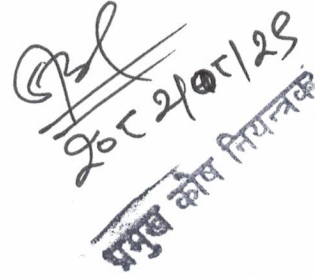 २०८२/०८/२९
प्रमुख कोष नियन्त्रक